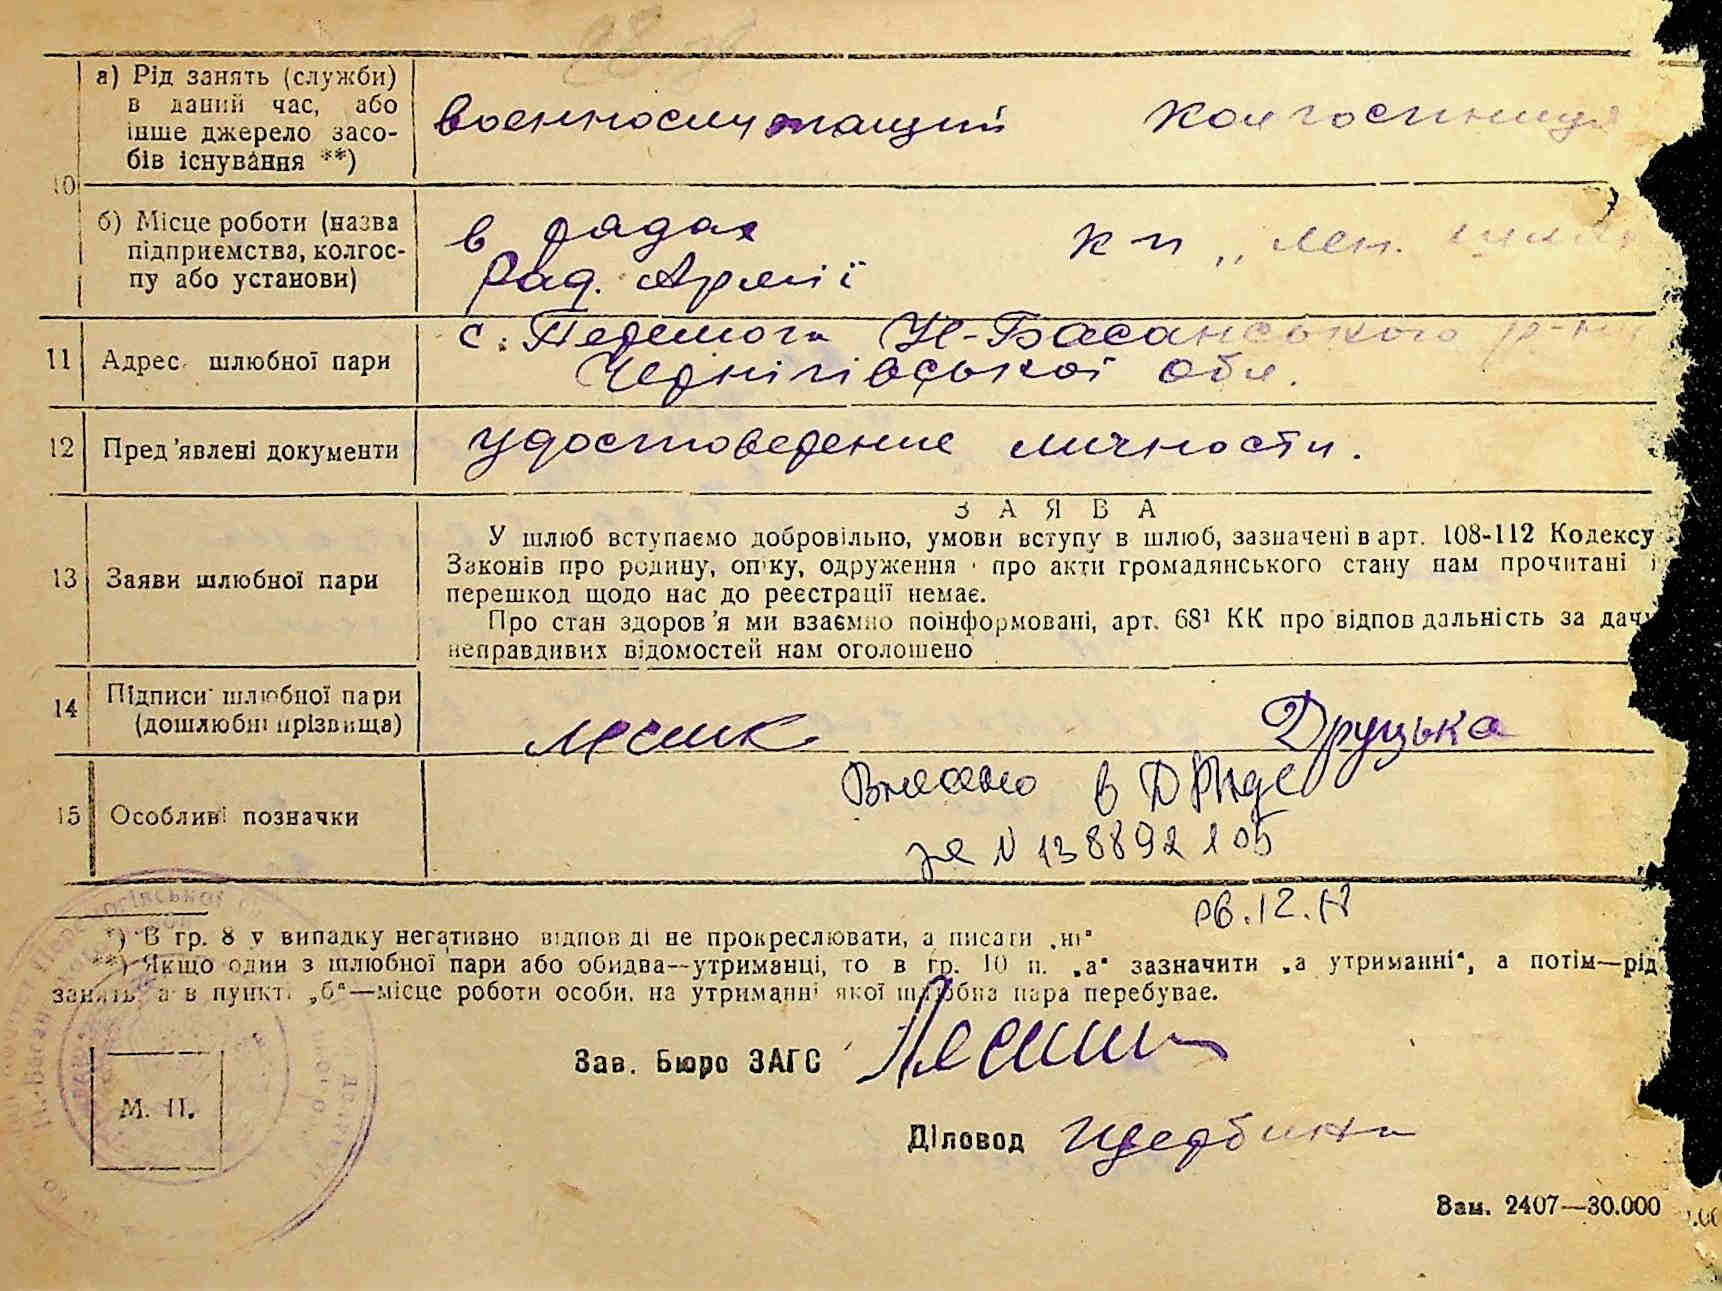 10
а) Рід занять (служби)
в даний час, або
інше джерело засо-
бів існування **)
военнослужащий колгоспниця
б) Місце роботи (назва
підприємства, колгос-
пу або установи)
в рядах к-п „Лен.
Рад. Армії
11 Адрес шлюбної пари
с. Перемога Н-Басанського р-ну
Чернігівської Обл.
12 Пред'явлені документи удостоверение личности.
13 Заяви шлюбної пари
ЗАЯВА
У шлюб вступаємо добровільно, умови вступу в шлюб, зазначені в арт. 108-112 Кодексу
Законів про родину, опіку, одруження і про акти громадянського стану нам прочитані і
перешкод щодо нас до реєстрації немає.
Про стан здоров'я ми взаємно поінформовані, арт. 68¹ КК про відповідальність за дачу
неправдивих відомостей нам оголошено
14 Підписи шлюбної пари
(дошлюбні прізвища)
Лесик Друцька
15 Особливі позначки
Внесено в ДРАЦС
за N 138892105
06.12.17
*) В гр. 8 у випадку негативної відповіді не прокреслювати, а писати „ні"
**) Якщо один з шлюбної пари або обидва—утриманці, то в гр. 10 п. „а" зазначити „а утриманні", а потім—рід
занять, а в пункті „б"—місце роботи особи, на утриманні якої шлюбна пара перебуває.
Зав. Бюро ЗАГС
М. П.
Діловод Щербина
Зам. 2407—30.000